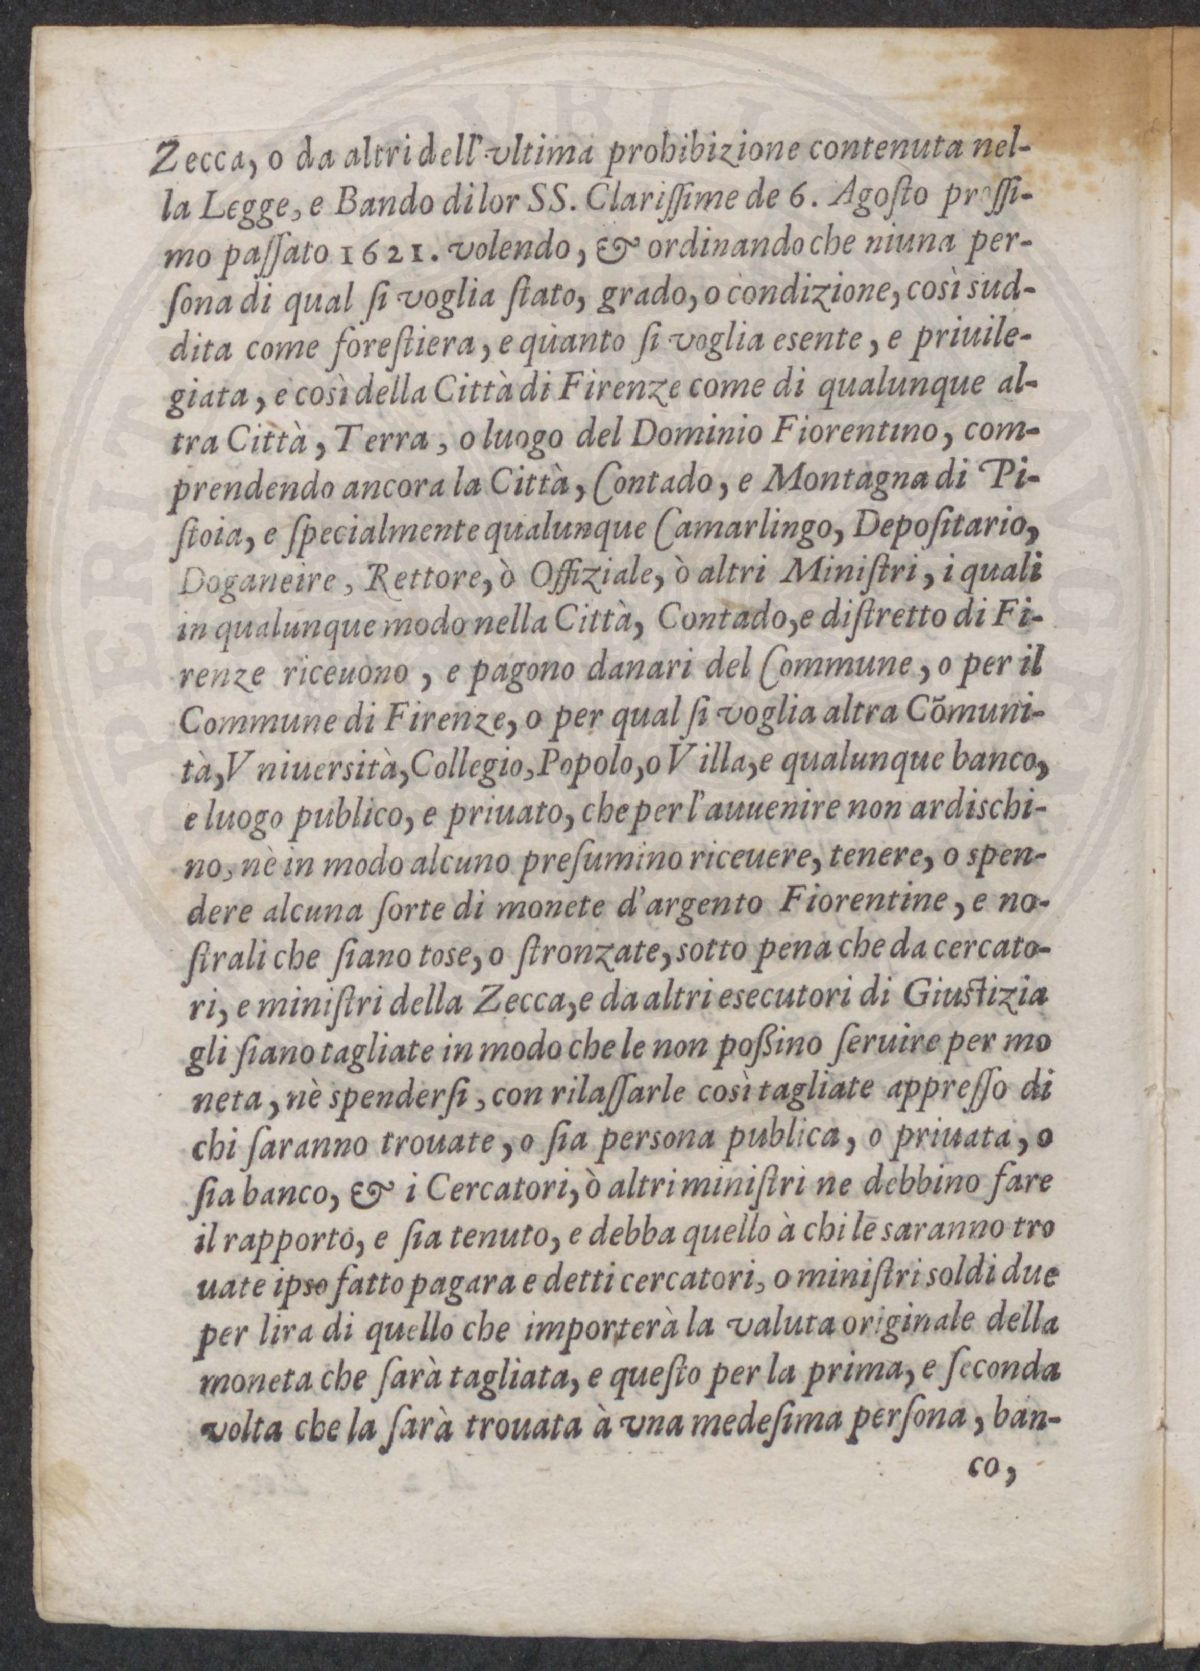 Zecca, o da altri dell'vltima prohibizione contenuta nel-
la Legge, e Bando di lor SS. Clariſſime de 6. Agoſto proſſi-
mo paſſato 1621. volendo, & ordinando che niuna per-
ſona di qual ſi voglia ſtato, grado, o condizione, così sud-
dita come foreſtiera, e quanto ſi voglia esente, e priuile-
giata, e così della Città di Firenze come di qualunque al-
tra Città, Terra, o luogo del Dominio Fiorentino, com-
prendendo ancora la Città, Contado, e Montagna di Pi-
ſtoia, e ſpecialmente qualunque Camarlingo, Depoſitario,
Doganeire, Rettore, ò Offiziale, ò altri Miniſtri, i quali
in qualunque modo nella Città, Contado, e diſtretto di Fi-
renze riceuono, e pagono danari del Commune, o per il
Commune di Firenze, o per qual ſi voglia altra Cõmuni-
tà, Vniuersità, Collegio, Popolo, o Villa, e qualunque banco,
e luogo publico, e priuato, che per l'auuenire non ardischi-
no, nè in modo alcuno preſumino riceuere, tenere, o spen-
dere alcuna ſorte di monete d'argento Fiorentine, e no-
ſtrali che ſiano tose, o ſtronzate, sotto pena che da cercato-
ri, e miniſtri della Zecca, e da altri esecutori di Giuſtizia
gli ſiano tagliate in modo che le non poßino ſeruire per mo
neta, nè spenderſi, con rilaſſarle così tagliate appreſſo di
chi ſaranno trouate, o ſia persona publica, o priuata, o
ſia banco, & i Cercatori, ò altri miniſtri ne debbino fare
il rapporto, e ſia tenuto, e debba quello à chi le saranno tro
uate ipso fatto pagara e detti cercatori, o miniſtri soldi due
per lira di quello che importerà la valuta originale della
moneta che ſarà tagliata, e queſto per la prima, e ſeconda
volta che la ſarà trouata à vna medeſima perſona, ban-
co,